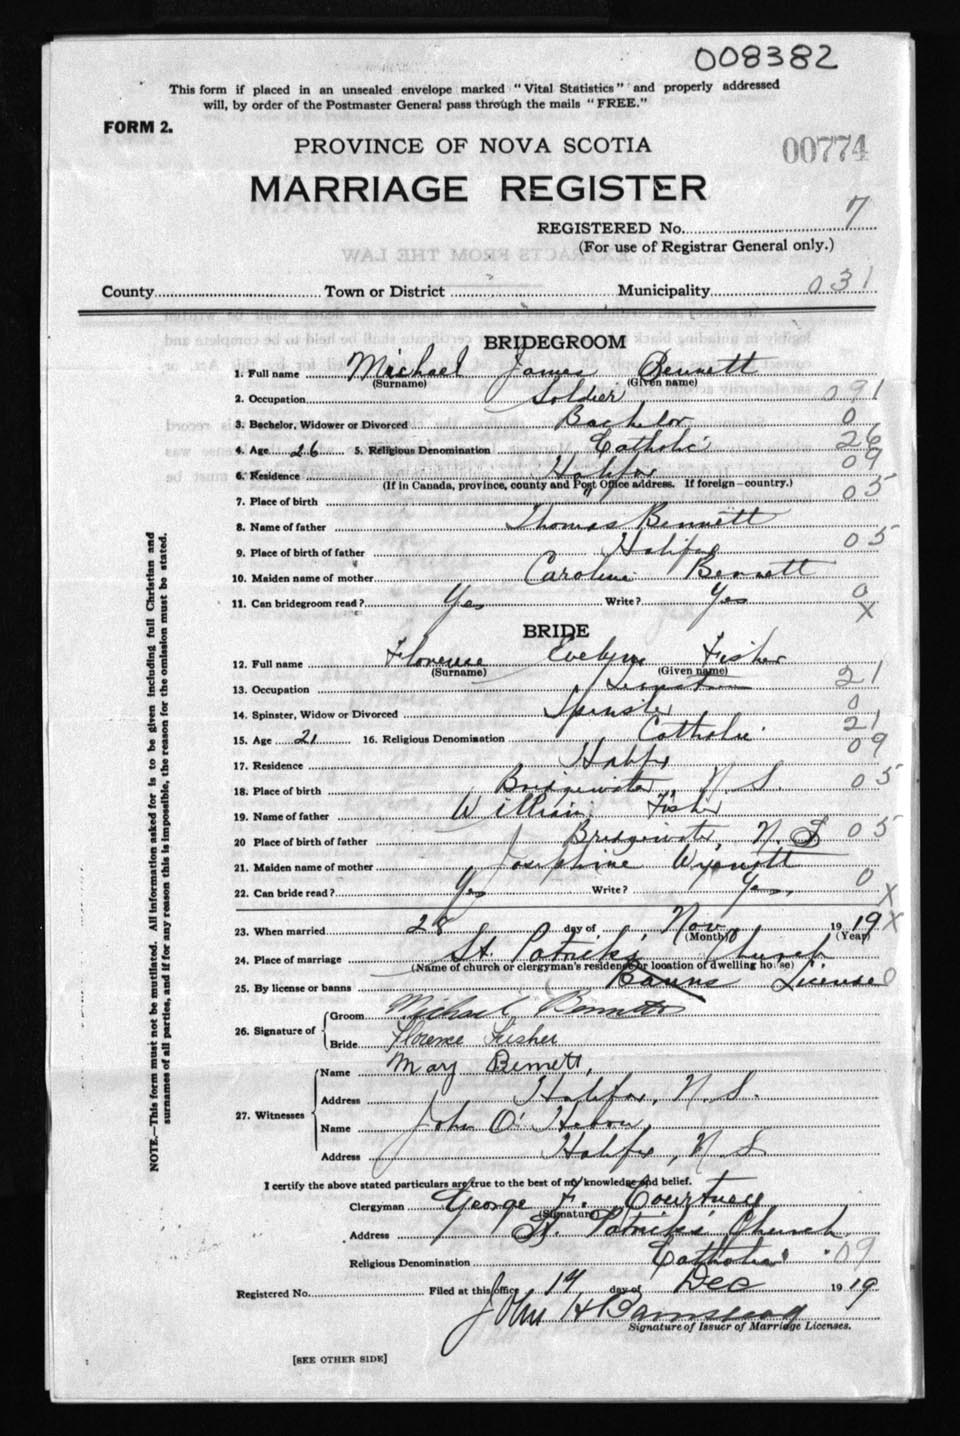 008382
This form if placed in an unsealed envelope marked "Vital Statistics" and properly addressed
will, by order of the Postmaster General pass through the mails "FREE."
FORM 2.
PROVINCE OF NOVA SCOTIA
00774
MARRIAGE REGISTER
REGISTERED No. 7
(For use of Registrar General only.)
County Town or District Municipality 031
BRIDEGROOM
1. Full name Michael James Bennett
(Surname) (Given name)
2. Occupation Soldier 091
3. Bachelor, Widower or Divorced Bachelor 0
4. Age 26 5. Religious Denomination Catholic 26
6. Residence Halifax 09
(If in Canada, province, county and Post Office address. If foreign—country.)
7. Place of birth " 05
8. Name of father Thomas Bennett
9. Place of birth of father Halifax 05
10. Maiden name of mother Caroline Bennett
11. Can bridegroom read? Yes Write? Yes 0
X
BRIDE
12. Full name Florence Evelyn Fisher
(Surname) (Given name)
13. Occupation 21
14. Spinster, Widow or Divorced Spinster 0
15. Age 21 16. Religious Denomination Catholic 21
17. Residence Halifax 09
18. Place of birth Bridgewater N. S. 05
19. Name of father William Fisher
20 Place of birth of father Bridgewater, N. S 05
21. Maiden name of mother Josephine
22. Can bride read? Yes Write? Yes, 0
X
23. When married 28 day of Nov 1919 X
(Month) (Year)
24. Place of marriage St. Patrick's Church
(Name of church or clergyman's residence or location of dwelling house)
25. By license or banns Banns License 0
26. Signature of Groom Michael Bennett
Bride Florence Fisher
27. Witnesses Name Mary Bennett,
Address Halifax, N. S.
Name John O'
Address Halifax, N S
I certify the above stated particulars are true to the best of my knowledge and belief.
Clergyman George F. Courtney
(Signature)
Address St. Patrick's Church
Religious Denomination Catholic 09
Registered No. Filed at this office 17 day of Dec 1919
John H Barnstead
Signature of Issuer of Marriage Licenses.
[SEE OTHER SIDE]
NOTE.—This form must not be mutilated. All information asked for is to be given including full Christian and
surnames of all parties, and if for any reason this is impossible, the reason for the omission must be stated.